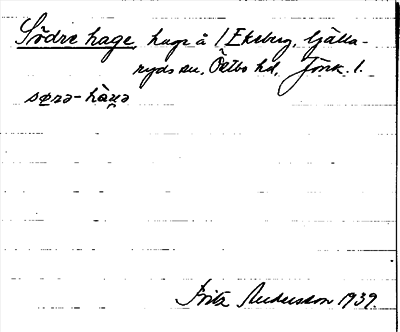 Södre hage, hage å 1 Ekeberg, Gälla-
ryds sn, Östbo hd, Jönk. l.
sørə-hàɡə
Fritz Andersson 1939.